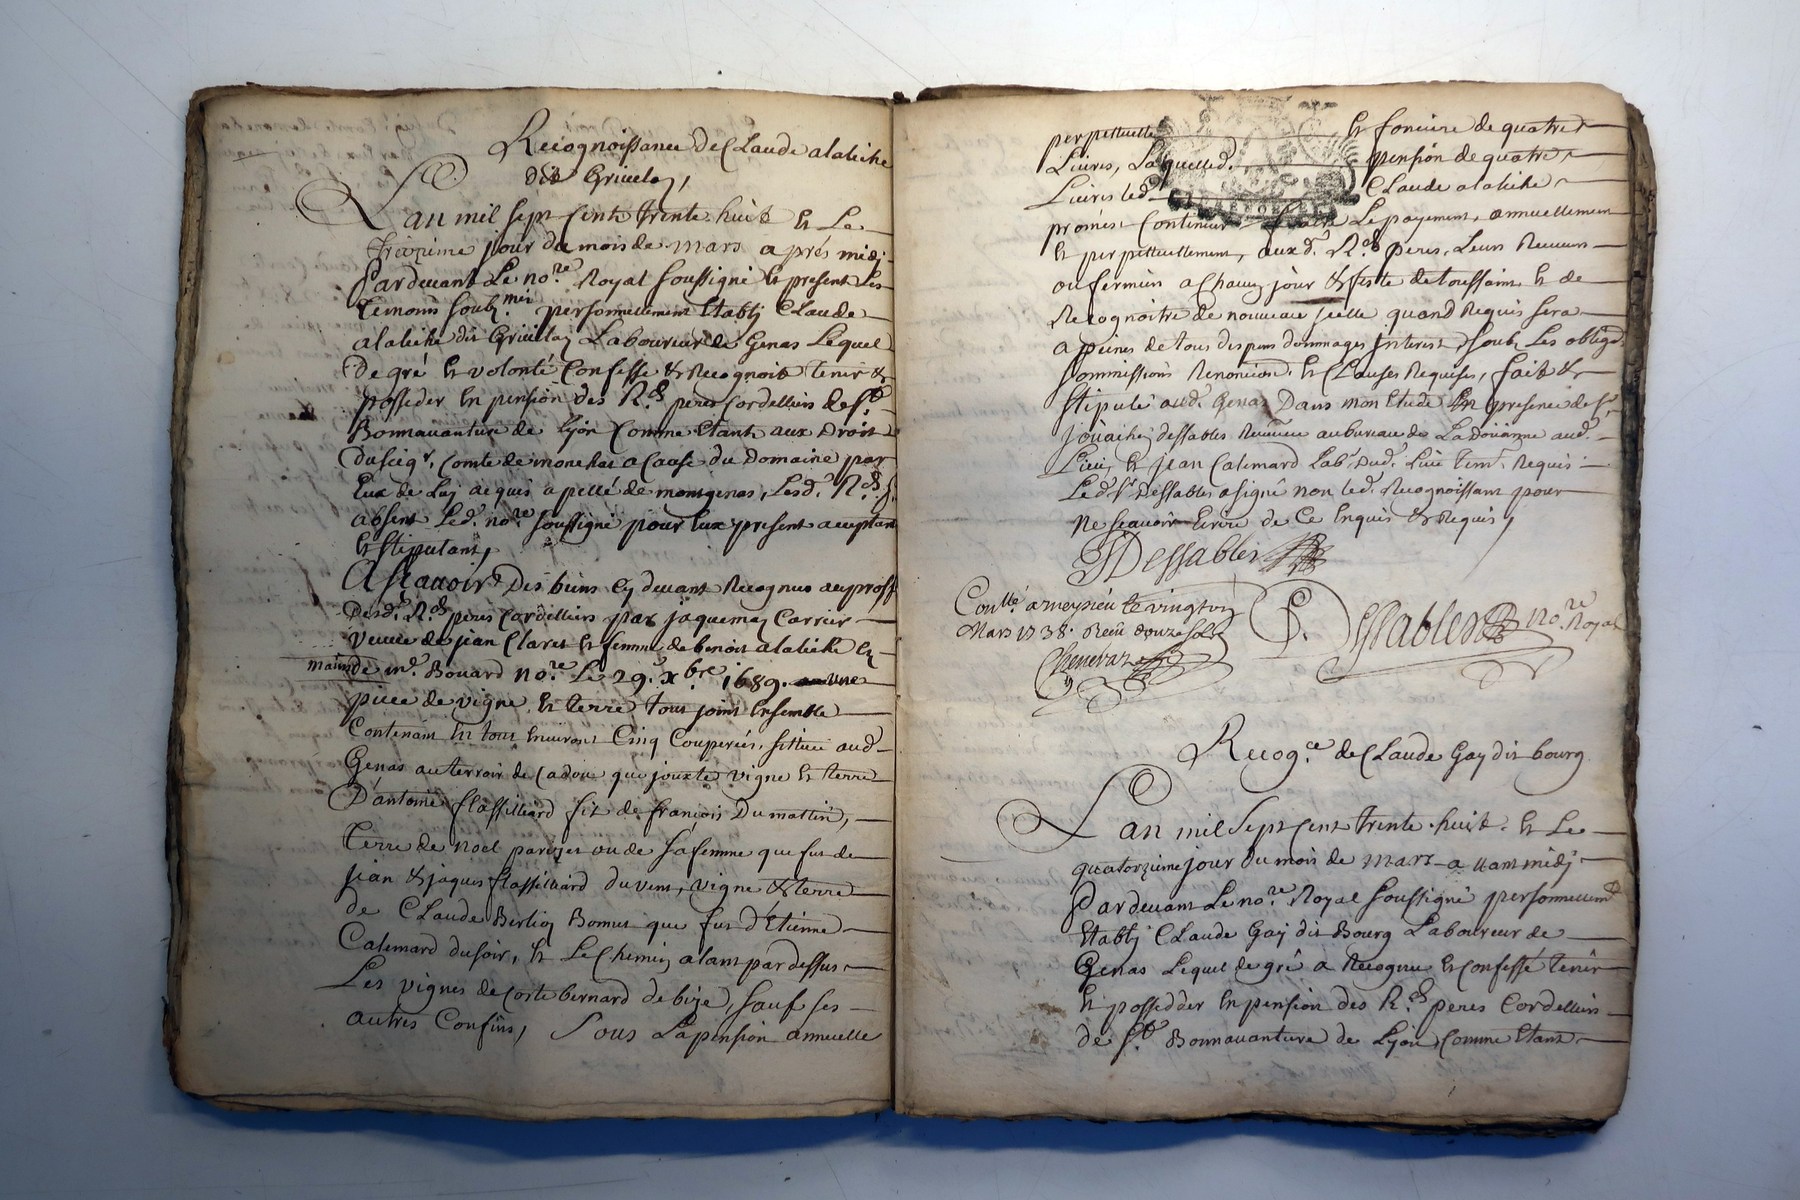 Recognoissance de Claude alaliche
dit Grivelaz,
Lan mil sept cents trente huit et Le
treizieme jour du mois de mars aprés midj
Pardevant Le no.re Royal soussigné et present Les
temoins soub.més personnellement Etablj Claude
alaliche dit Grivelaz Laboureur de Genas Lequel
De gré et volonté Confesse et Recognoit tenir et
posseder en pension des R.ds peres Cordelliers de S.t
Bonnavanture de Lyon Comme Etants aux Droits
du seig.r Comte de monchat a Cause du Domaine par
Eux de Luj acquis apellé de montgenas, Lesd. R.ds P.
absent Led. no.re soussigné pour Eux present acceptant
et stipulant,
Asscavoir Des biens cy devant Recognus au proffit
Desd. R.ds peres Cordelliers par jaquemaz Carrier
veuve de jean Claret et femme de benoit alaliche Ez
mains de m.e Bouard no.re Le 29.e xbre 1689. une
piece de vigne et terre tout joint Ensemble
Contenant En tout Environ Cinq Couperées, sittuée aud.
Genas au terroir de Cadou que jouxte vigne et terre
D'antoine flassilliard fils de francois Du mattin,
terre de noel parizet ou de sa femme que fut de
jean et jaques flassilliard du vent, vigne et terre
de Claude Berlioz Bomus que fut d'Etienne
Calemard du soir, et Le Chemin alant par dessus
Les vignes de Coste bernard de bize, sauf ses
autres Confins, Sous La pension annuelle
perpettuelle et fonciere de quatre
Livres, Laquelled. pension de quatre
Livres led. Claude alaliche
promet Continuer faire Le payement, annuellement
et perpettuellement, auxd. R.ds peres, Leurs Receveurs
ou fermiers a Chacun jour et feste de toussaints et de
Recognoitre de nouveau jcelle quand Requis sera
a peines de tous despens dommages jnterest, soub Les obligd.
soummissions Renonciaon. et Clauses Requises, fait et
stipulé aud. Genas Dans mon Etude En presence de s.r
joüachin dessables Receveur au bureau de La Doüanne aud.
Lieu, et jean Calemard Lab.r dud. Lieu tem.s Requis
Led. s.r Dessables a signé non led. Recognoissant pour
ne scavoir Ecrire de Ce Enquis et Requis,
J Dessables
Con.llé a meysieu le vingt
Mars 1738. Receu douze sols
Chenevaz
Dessables no.re Royal
Recog.ce de Claude Gay dit bourg
Lan mil sept cent trente huit. et Le
quatorzieme jour du mois de mars avant midj
Pardevant Le no.re Royal soussigné personnellem.t
Etablj Claude Gay dit Bourg Laboureur de
Genas Lequel de gré a Recognu et Confessé tenir
et possedder En pension des R.ds peres Cordelliers
de S.t Bonnavanture de Lyon Comme Etant